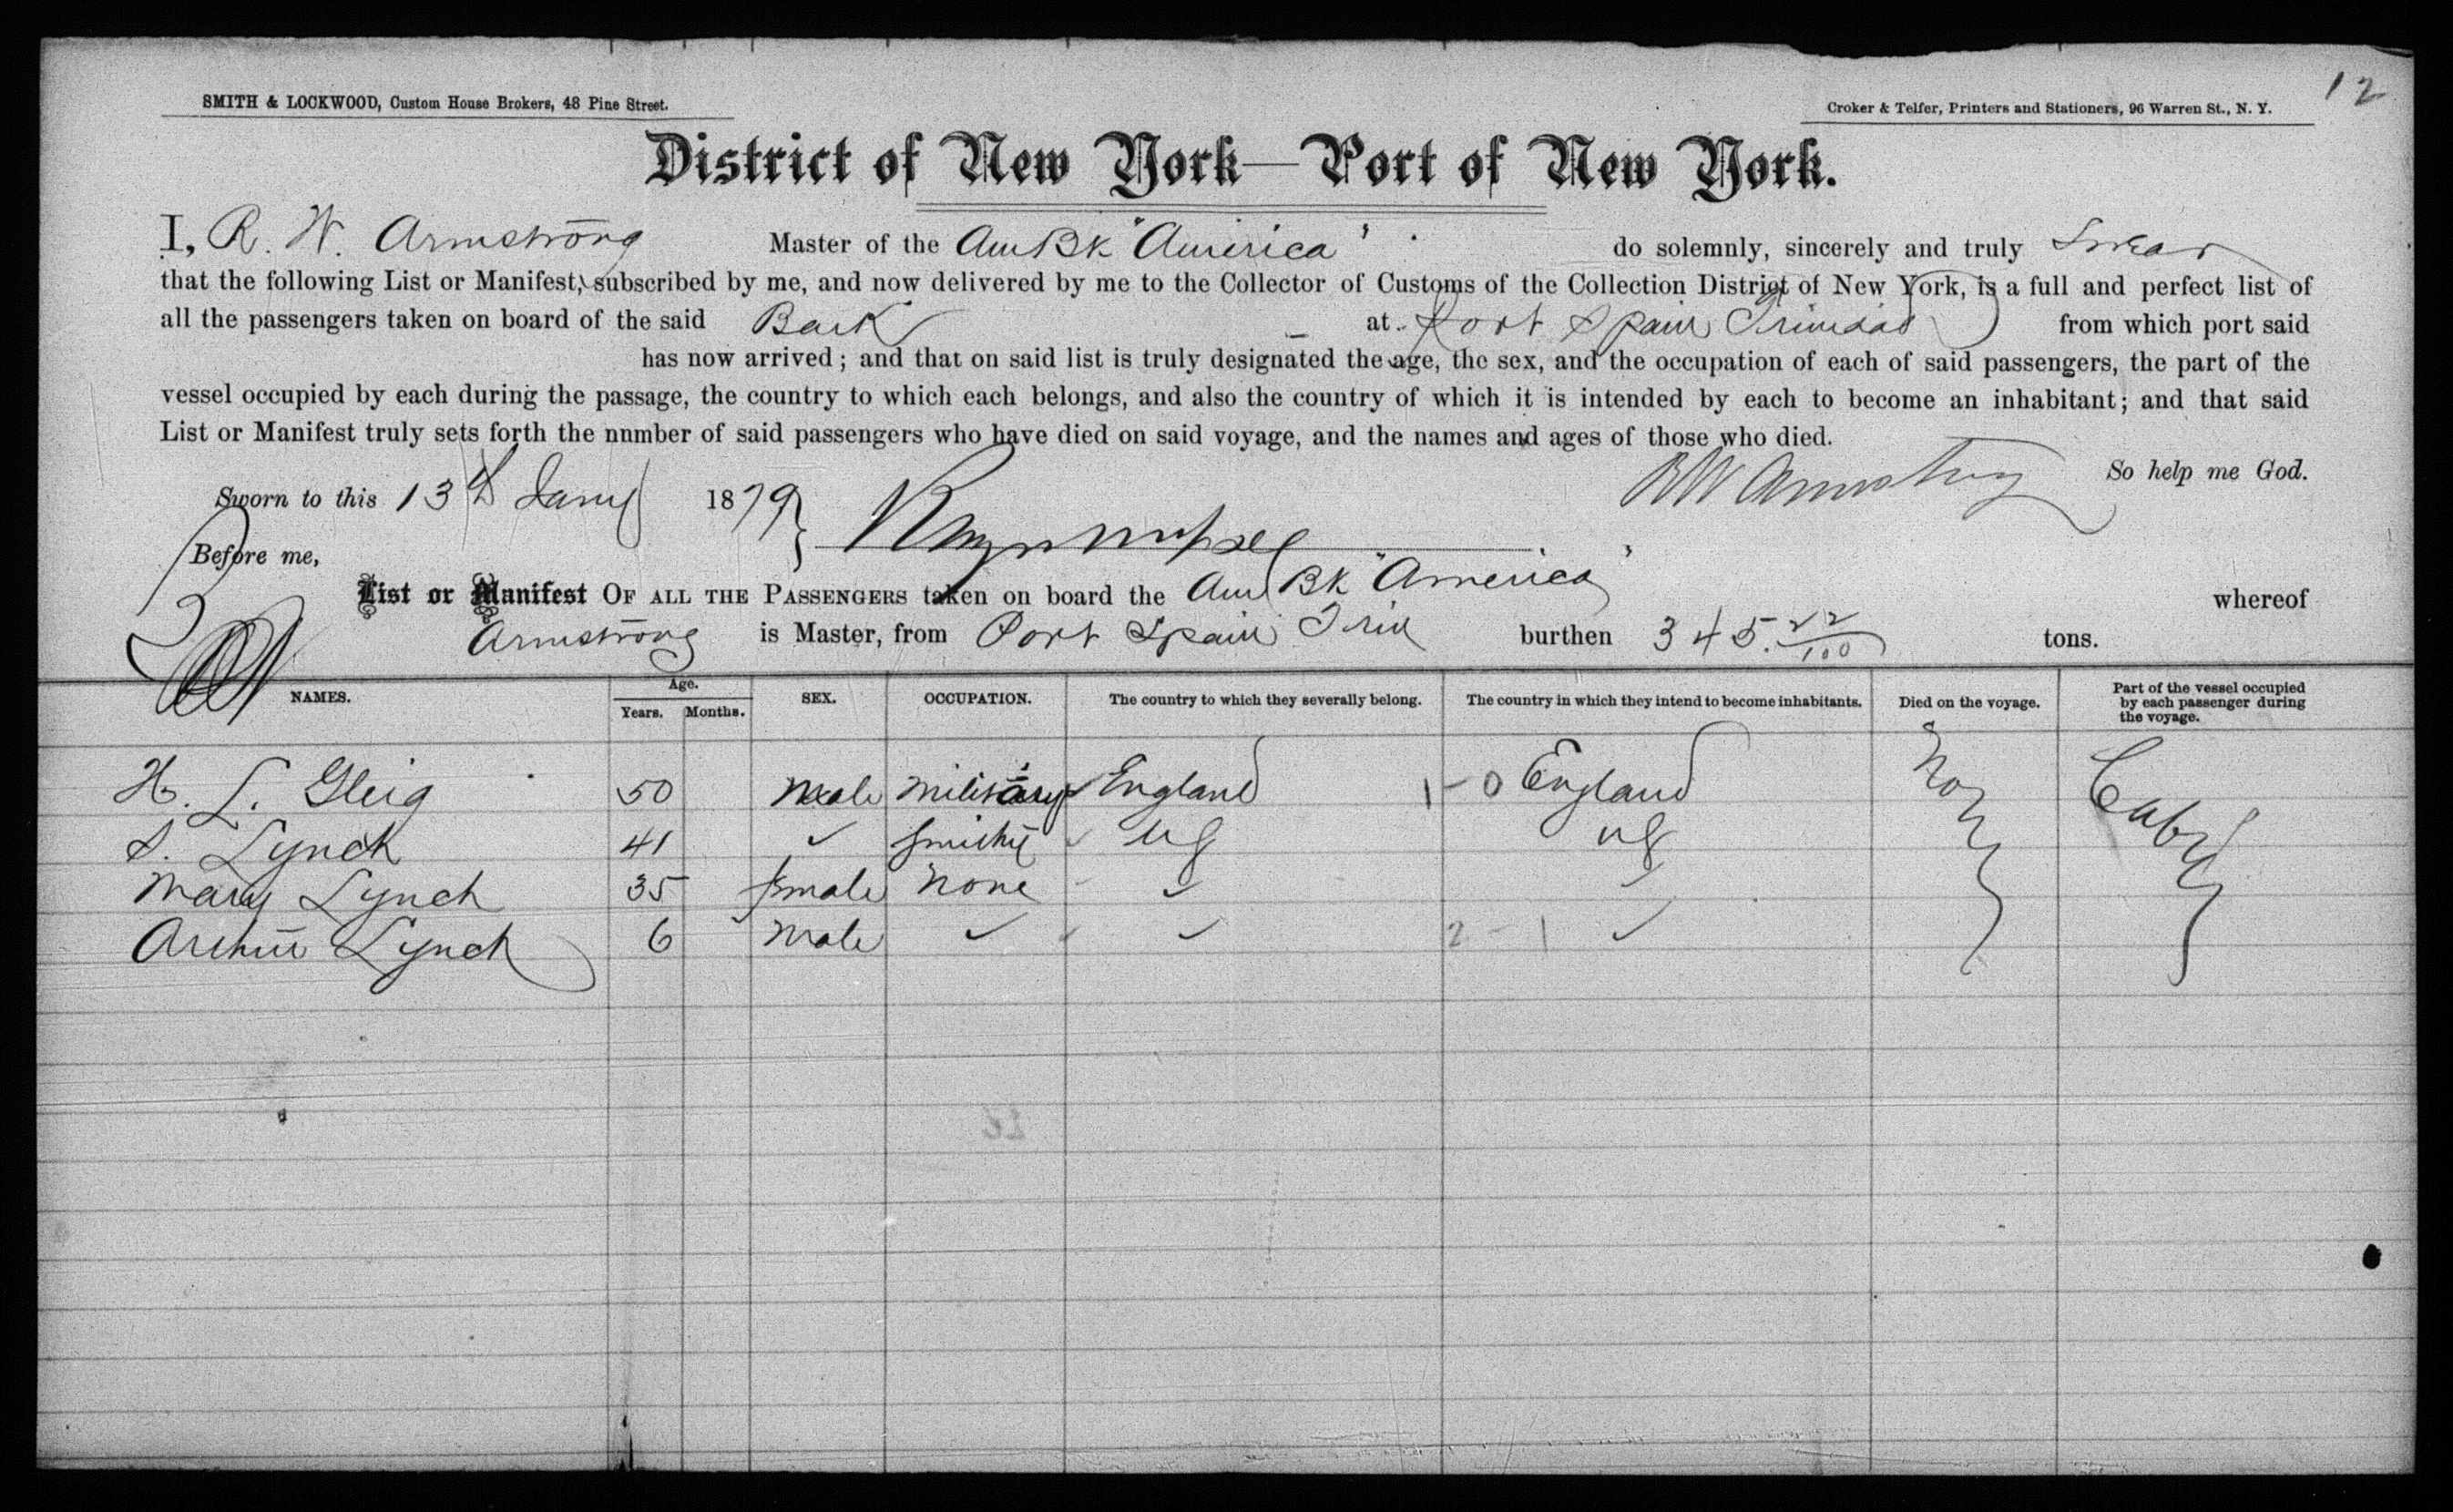 12
SMITH & LOCKWOOD, Custom House Brokers, 48 Pine Street.
Croker & Telfer, Printers and Stationers, 96 Warren St., N. Y.
District of New York—Port of New York.
I, R. W. Armstrong Master of the Am Bk "America" do solemnly, sincerely and truly Swear
that the following List or Manifest, subscribed by me, and now delivered by me to the Collector of Customs of the Collection District of New York, is a full and perfect list of
all the passengers taken on board of the said Bark at Port Spain Trinidad from which port said
has now arrived; and that on said list is truly designated the age, the sex, and the occupation of each of said passengers, the part of the
vessel occupied by each during the passage, the country to which each belongs, and also the country of which it is intended by each to become an inhabitant; and that said
List or Manifest truly sets forth the nnmber of said passengers who have died on said voyage, and the names and ages of those who died.
So help me God.
Sworn to this 13th Jany 1879 RW Armstrong
Before me,
List or Manifest OF ALL THE PASSENGERS taken on board the Am Bk "America" whereof
Armstrong is Master, from Port Spain Trin burthen 345. 22/100 tons.
NAMES. Age. Years. Months. SEX. OCCUPATION. The country to which they severally belong. The country in which they intend to become inhabitants. Died on the voyage. Part of the vessel occupied by each passenger during the voyage.
H. L. Gleig 50 male military England 1-0 England
S. Lynch 41 ✓ ✓ US US
Mary Lynch 35 female none ✓ ✓
Arthur Lynch 6 male ✓ ✓ 2-1 ✓